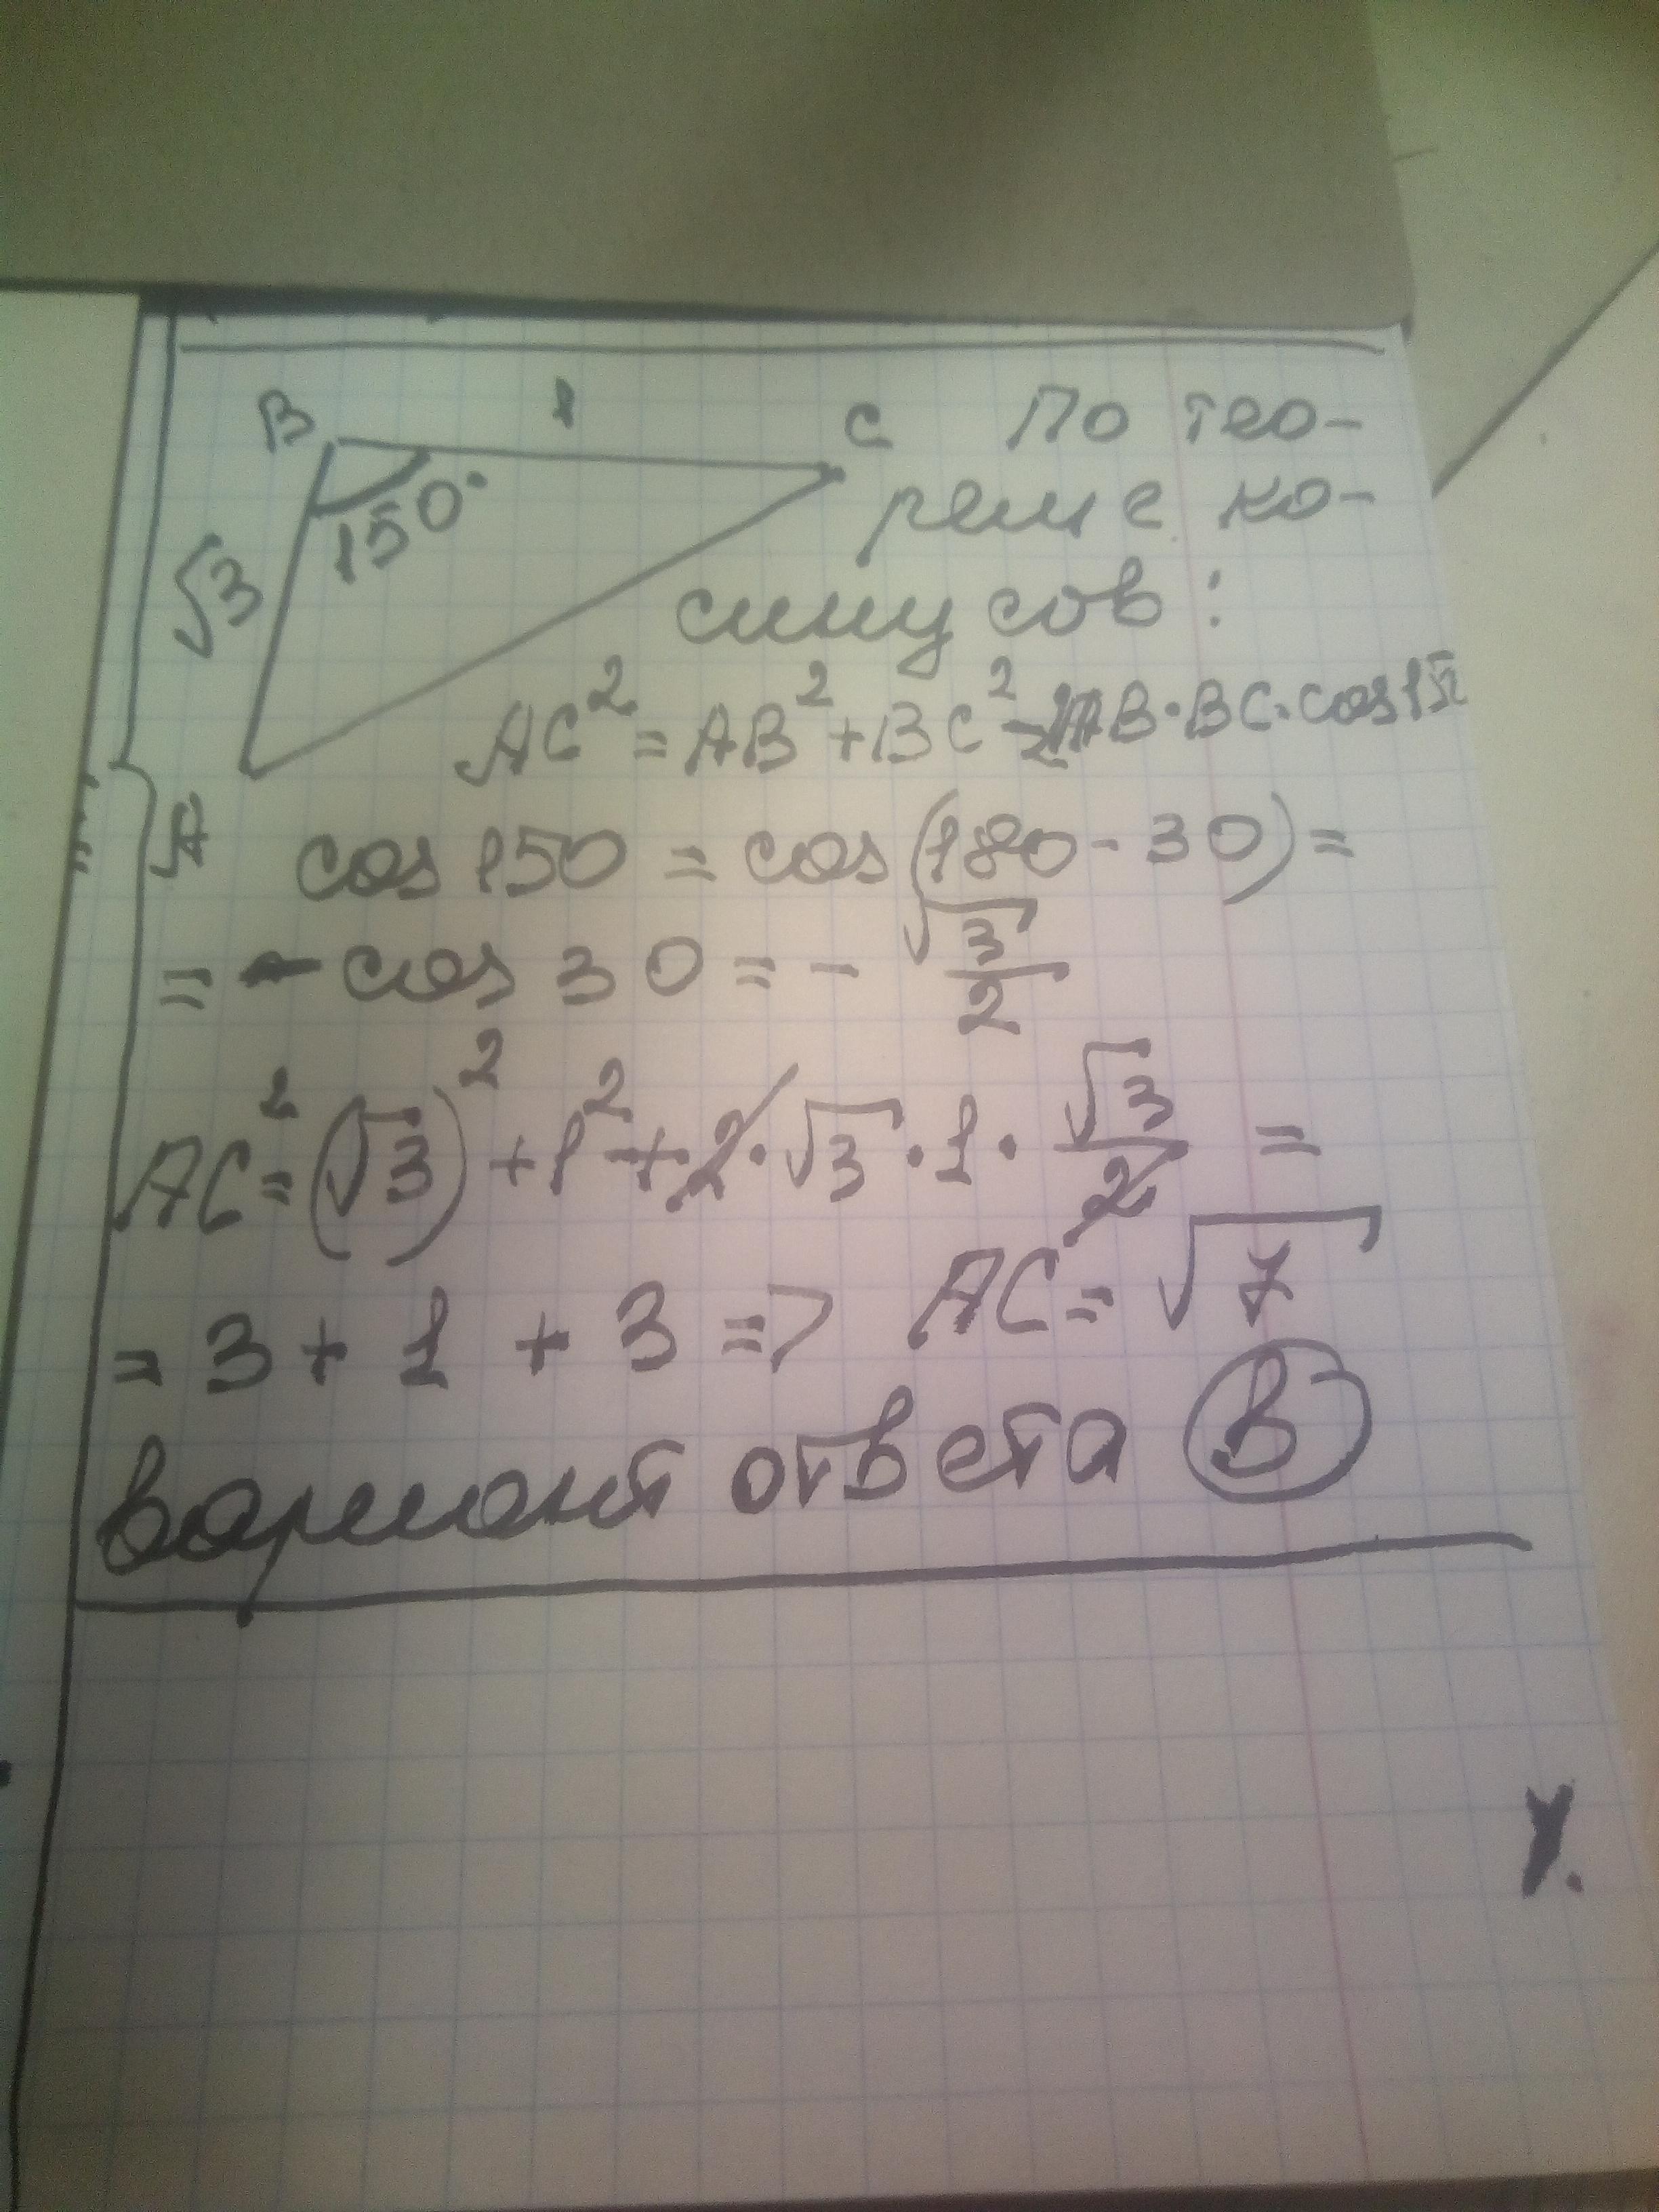 B 1 C По тео-
реме ко-
√3 150°
синусов:
AC² = AB² + BC² - 2AB·BC·cos15
A cos 150 = cos(180 - 30) =
= - cos 30 = - √3/2
AC² = (√3)² + 1² + 2·√3·1·√3/2 =
= 3 + 1 + 3 => AC = √7
вариант ответа В